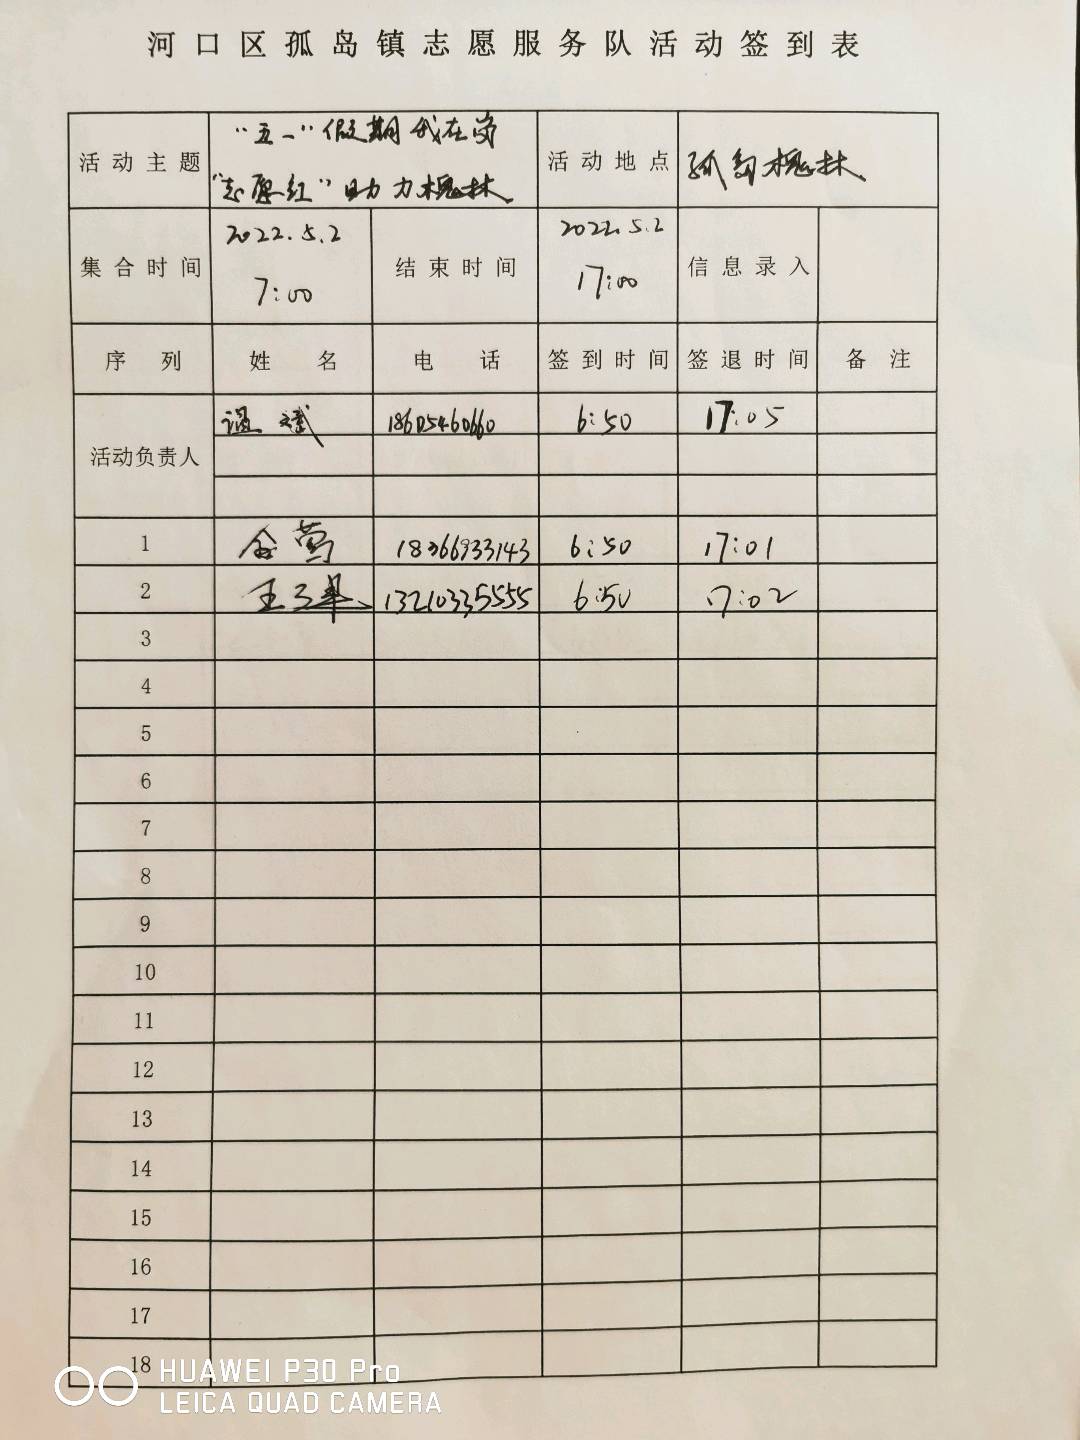 河口区孤岛镇志愿服务队活动签到表
活动主题 “五一”假期我在岗 “志愿红”助力槐林 活动地点 孤岛槐林
集合时间 2022.5.2 7:00 结束时间 2022.5.2 17:00 信息录入
序列 姓名 电话 签到时间 签退时间 备注
活动负责人 温斌 18605460660 6:50 17:05
1 18366933143 6:50 17:01
2 王 13210335555 6:50 17:02
3
4
5
6
7
8
9
10
11
12
13
14
15
16
17
18
HUAWEI P30 Pro
LEICA QUAD CAMERA